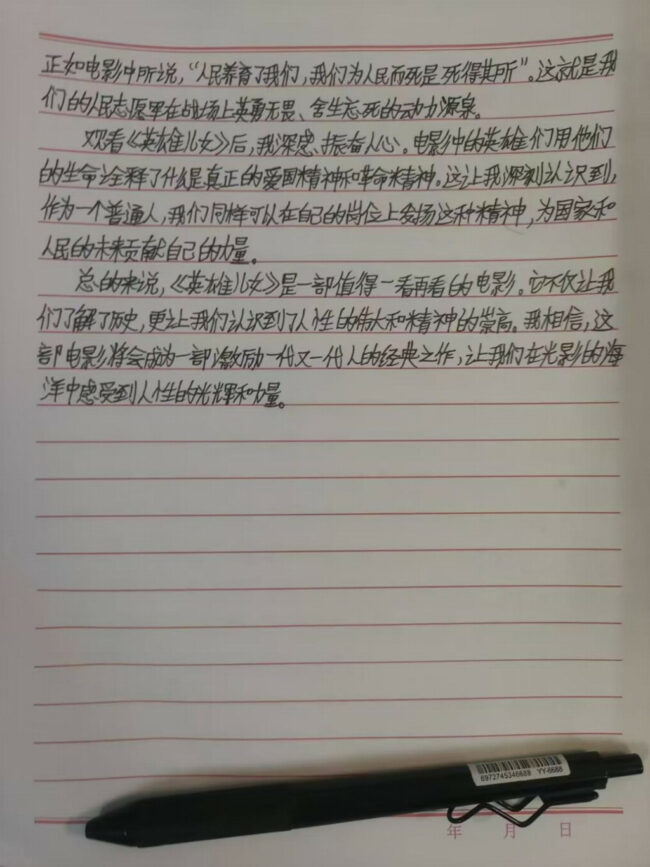 正如电影中所说，“人民养育了我们，我们为人民而死是死得其所”。这就是我
们的人民志愿军在战场上英勇无畏、舍生忘死的动力源泉。
观看《英雄儿女》后，我深感振奋人心。电影中的英雄们用他们
的生命诠释了什么是真正的爱国精神和革命精神。这让我深刻认识到，
作为一个普通人，我们同样可以在自己的岗位上发扬这种精神，为国家和
人民的未来贡献自己的力量。
总的来说，《英雄儿女》是一部值得一看再看的电影。它不仅让我
们了解了历史，更让我们认识到了人性的伟大和精神的崇高。我相信，这
部电影将会成为一部激励一代又一代人的经典之作，让我们在光影的海
洋中感受到人性的光辉和力量。
6972745346688 YY-6688
年 月 日